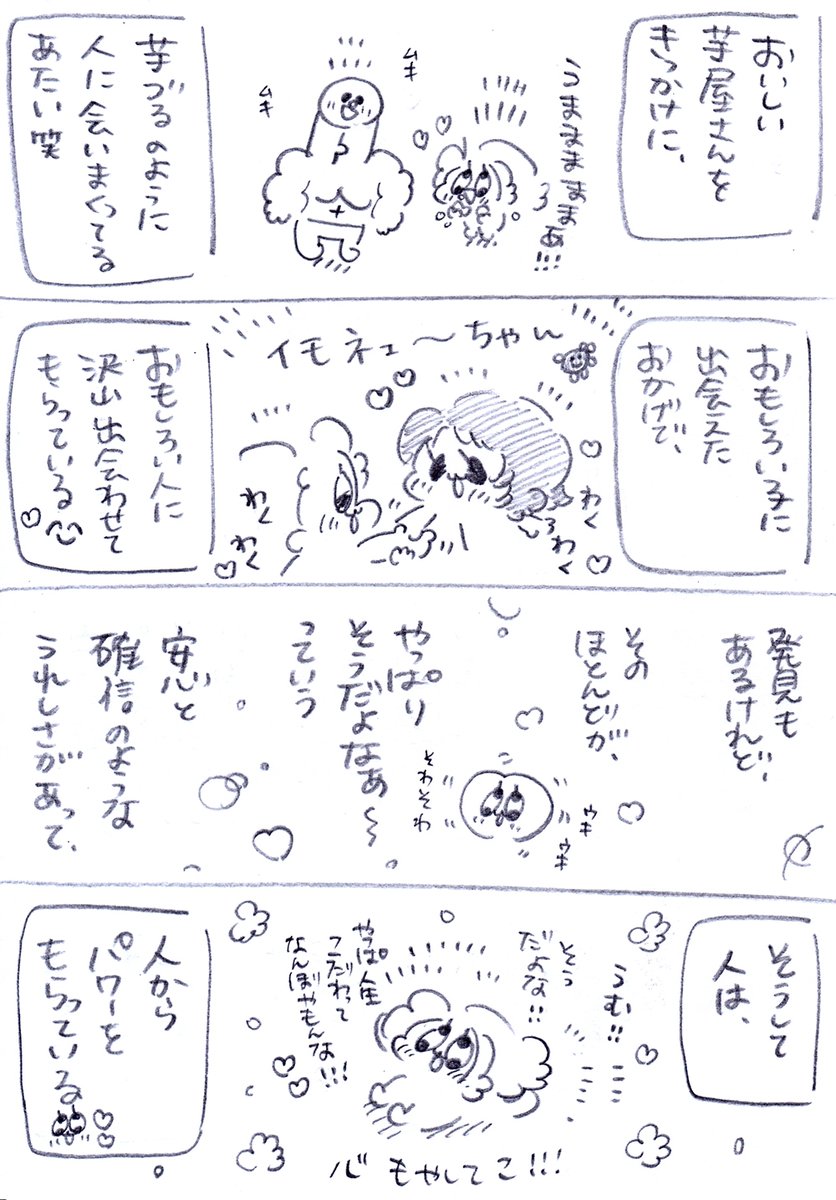 おいしい
芋屋さんを
きっかけに、
うまままままぁ!!!
ムキ
ムキ
芋づるのように
人に会いまくってる
あたい笑
おもしろい子に
出会えた
おかげで、
イモネェ〜ちゃん
わくわく
わくわく
おもしろい人に
沢山出会わせて
もらっている
発見も
あるけれど、
その
ほとんどが、
ウキ
ウキ
そわそわ
やっぱり
そうだよなぁ〜
っていう
安心と
確信のような
うれしさがあって、
そうして
人は、
うむ!!
そう
だよな!!
やっぱ人生
こだわって
なんぼやもんな!!!
心もやしてこ!!!
人から
パワーを
もらっている